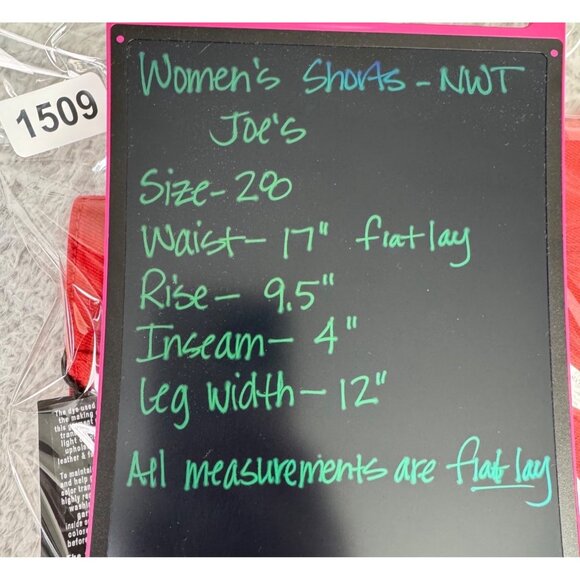 1509
Women's Shorts - NWT
Joe's
Size - 290
Waist - 17" flat lay
Rise - 9.5"
Inseam - 4"
Leg width - 12"
All measurements are flat lay
The dye used
the making
this garment
light
leather & f
To maintai
and help
color tran
highly re
washin
gar
inside o
colors
before